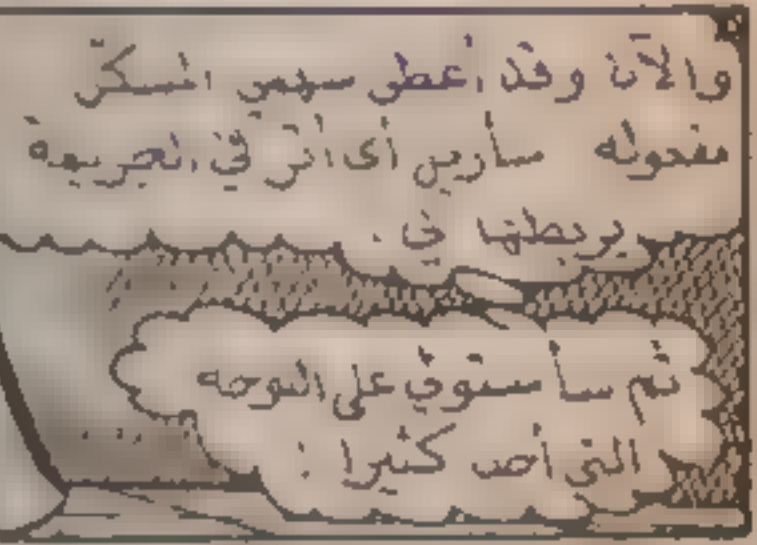 والآن وقد أعطى سهمى المسكر
مفعوله سأزيل أى أثر فى الجريمة
يربطها بى .
ثم سأستولى على اللوحة
التى أص كثيرا !